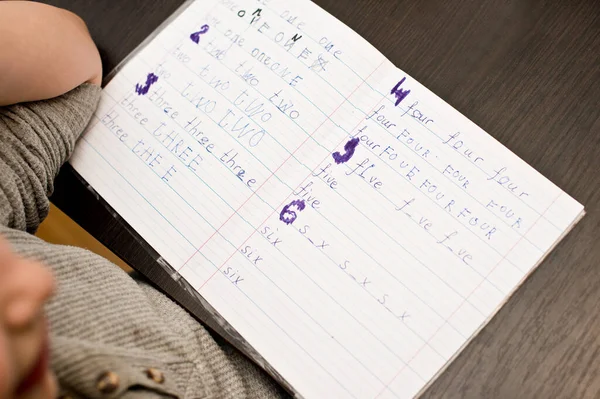 one one
ONE ONE
2 one one ONE
two two two
two TWO TWO
3 three three three
three THREE
three THE E
4 four four four
four FOUR FOUR FOUR
four FOUE FOUR FOUR
5 five f_ve f_ve
five
five
6 s_x s_x s_x
six
six
six